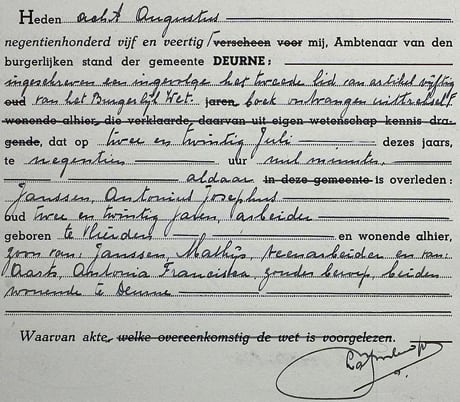 Heden acht Augustus
negentienhonderd vijf en veertig / verscheen voor mij, Ambtenaar van den
burgerlijken stand der gemeente DEURNE:
ingeschreven een ingevolge het tweede lid van artikel vijftig
oud van het Burgerlijk Wet. jaren, boek ontvangen uittreksel:
wonende alhier, die verklaarde, daarvan uit eigen wetenschap kennis dra-
gende, dat op twee en twintig Juli dezes jaars,
te negentien uur nul minuten,
aldaar in deze gemeente is overleden:
Janssen, Antonius Josephus
oud twee en twintig jaren, arbeider
geboren te Vlierden en wonende alhier,
zoon van: Janssen, Mathijs, veenarbeider en van:
Aarts, Antonia Franciska, zonder beroep, beiden
wonende te Deurne
Waarvan akte, welke overeenkomstig de wet is voorgelezen.